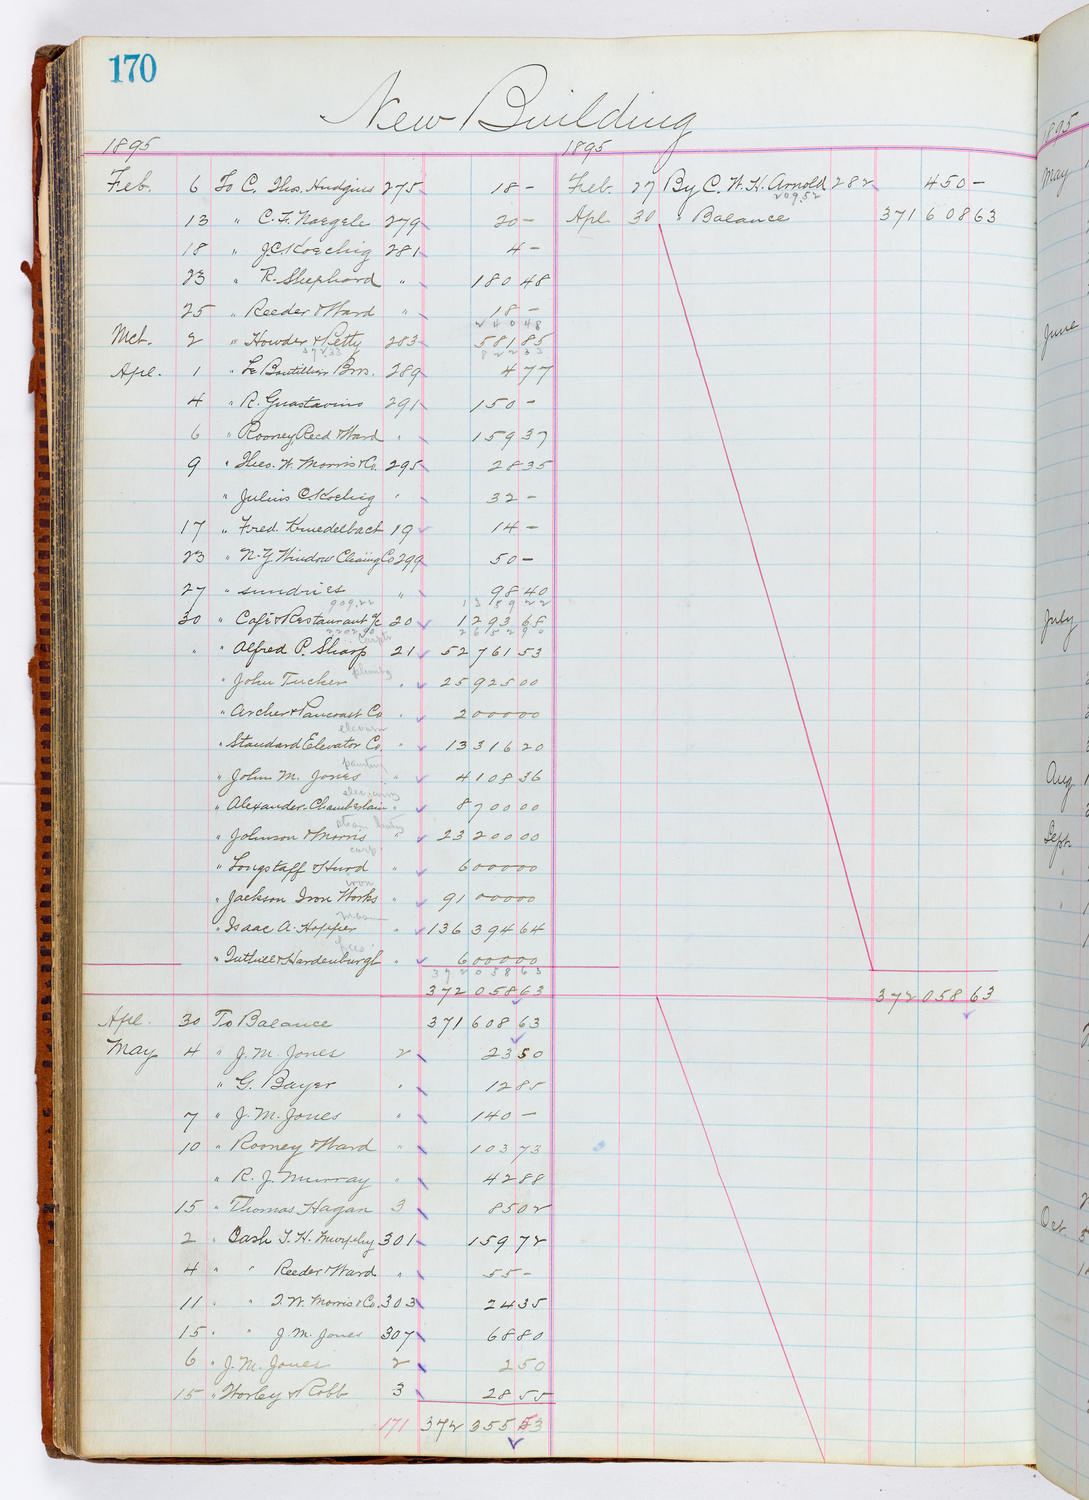 170
New Building
1895
1895
Feb. 6 To C. Thos. Hudgins 275 18 -
Feb. 27 By C. W. H. Arnold 282 450 -
209.52
13 " C. F. Naegele 279 20 -
Apl. 30 " Balance 371 608 63
18 " J.C. Koechig 281 4 -
23 " R. Shephard " 180 48
25 " Reeder & Ward " 18 -
240 48
Mch. 2 " Howder & Petty 283 581 85
822 33
Apl. 1 " Le Boutillier Bros. 289 4 77
4 " R. Guastavino 291 150 -
6 " Rooney, Reed & Ward " 159 37
9 " Theo. W. Morris & Co. 295 28 35
" Julius C. Koechig " 32 -
17 " Fred. Knuedelbach 19 14 -
23 " N.Y. Window Cleaning Co 299 50 -
27 " sundries " 98 40
909.22 1359 22
30 " Café & Restaurant a/c 20 1 293 68
2202 90 2652 90
" " Alfred P. Sharp 21 52 761 53
" John Tucker plumbg " 25 925 00
" Archer & Pancoast Co " 2 000 00
" Standard Elevator Co. " 13 316 20
painting
" John M. Jones " 4 108 36
" Alexander-Chamberlain " 8 700 00
steam
" Johnson & Morris " 23 200 00
" Longstaff & Hurd " 6 000 00
iron
" Jackson Iron Works " 91 000 00
mason
" Isaac A. Hopper " 136 394 64
" Tuthill & Hardenburgh " 6 000 00
372 058 63
372 058 63
372 058 63
Apl. 30 To Balance 371 608 63
May 4 " J. M. Jones 2 23 50
" G. Bayer " 12 85
7 " J. M. Jones " 140 -
10 " Rooney & Ward " 103 73
" R. J. Murray " 42 88
15 " Thomas Hagan 3 85 02
2 " Cash T. H. Murphy 301 159 72
4 " " Reeder & Ward " 55 -
11 " " T. W. Morris & Co. 303 24 35
15 " " J. M. Jones 307 68 80
6 " J. M. Jones 2 2 50
15 " Worley & Robb 3 28 55
171 372 355 53
1895
May
June
July
Aug
Sept.
Oct.